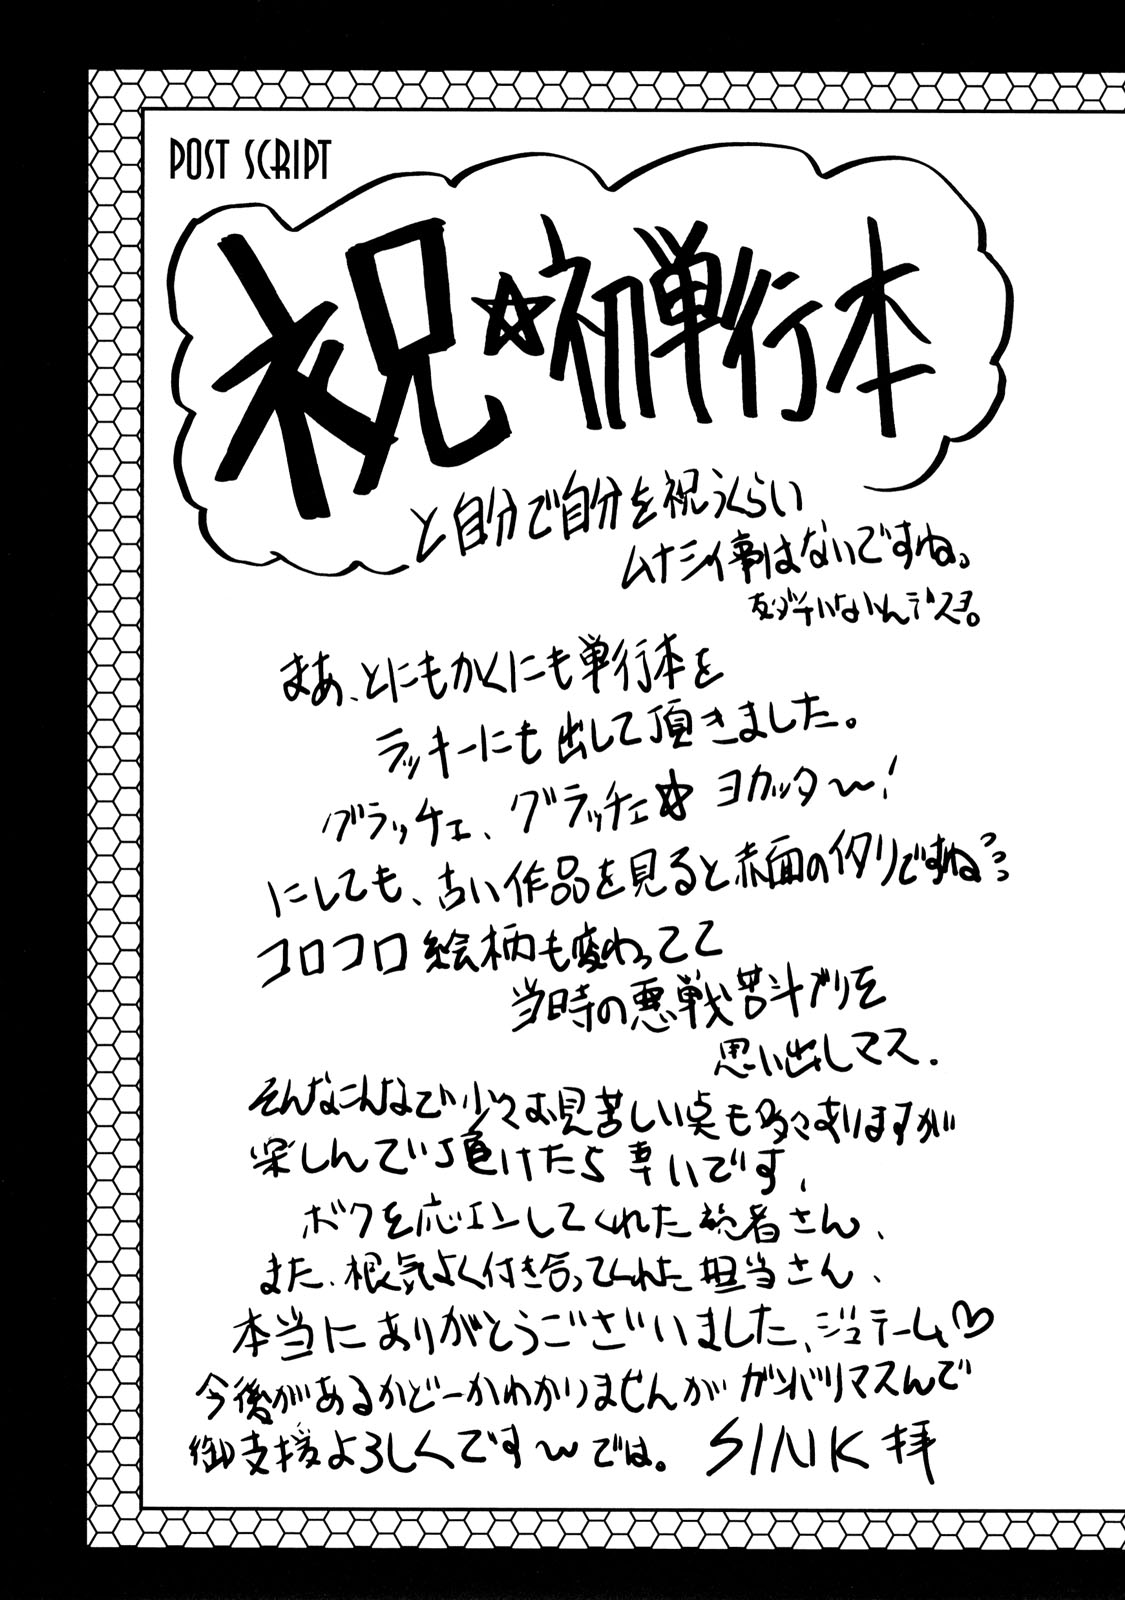 POST SCRIPT
祝☆初単行本
と自分で自分を祝うくらい
ムナシイ事はないですね。
友ダチいないんデスヨ。
まあ、とにもかくにも単行本を
ラッキーにも出して頂きました。
グラッチェ、グラッチェ☆ ヨカッタ〜!
にしても、古い作品を見ると赤面のイタリですねつつつ
コロコロ絵柄も変わってて
当時の悪戦苦斗ブリを
思い出しマス.
そんなこんなで少々お見苦しい点も多々ありますが
楽しんで頂けたら幸いです、
ボクを応エンしてくれた読者さん、
また、根気よく付き合ってくれた担当さん、
本当にありがとうございました、ジュテーム♡
今後があるかどーかわかりませんがガンバリマスんで
御支援よろしくです〜では。 SINK拝